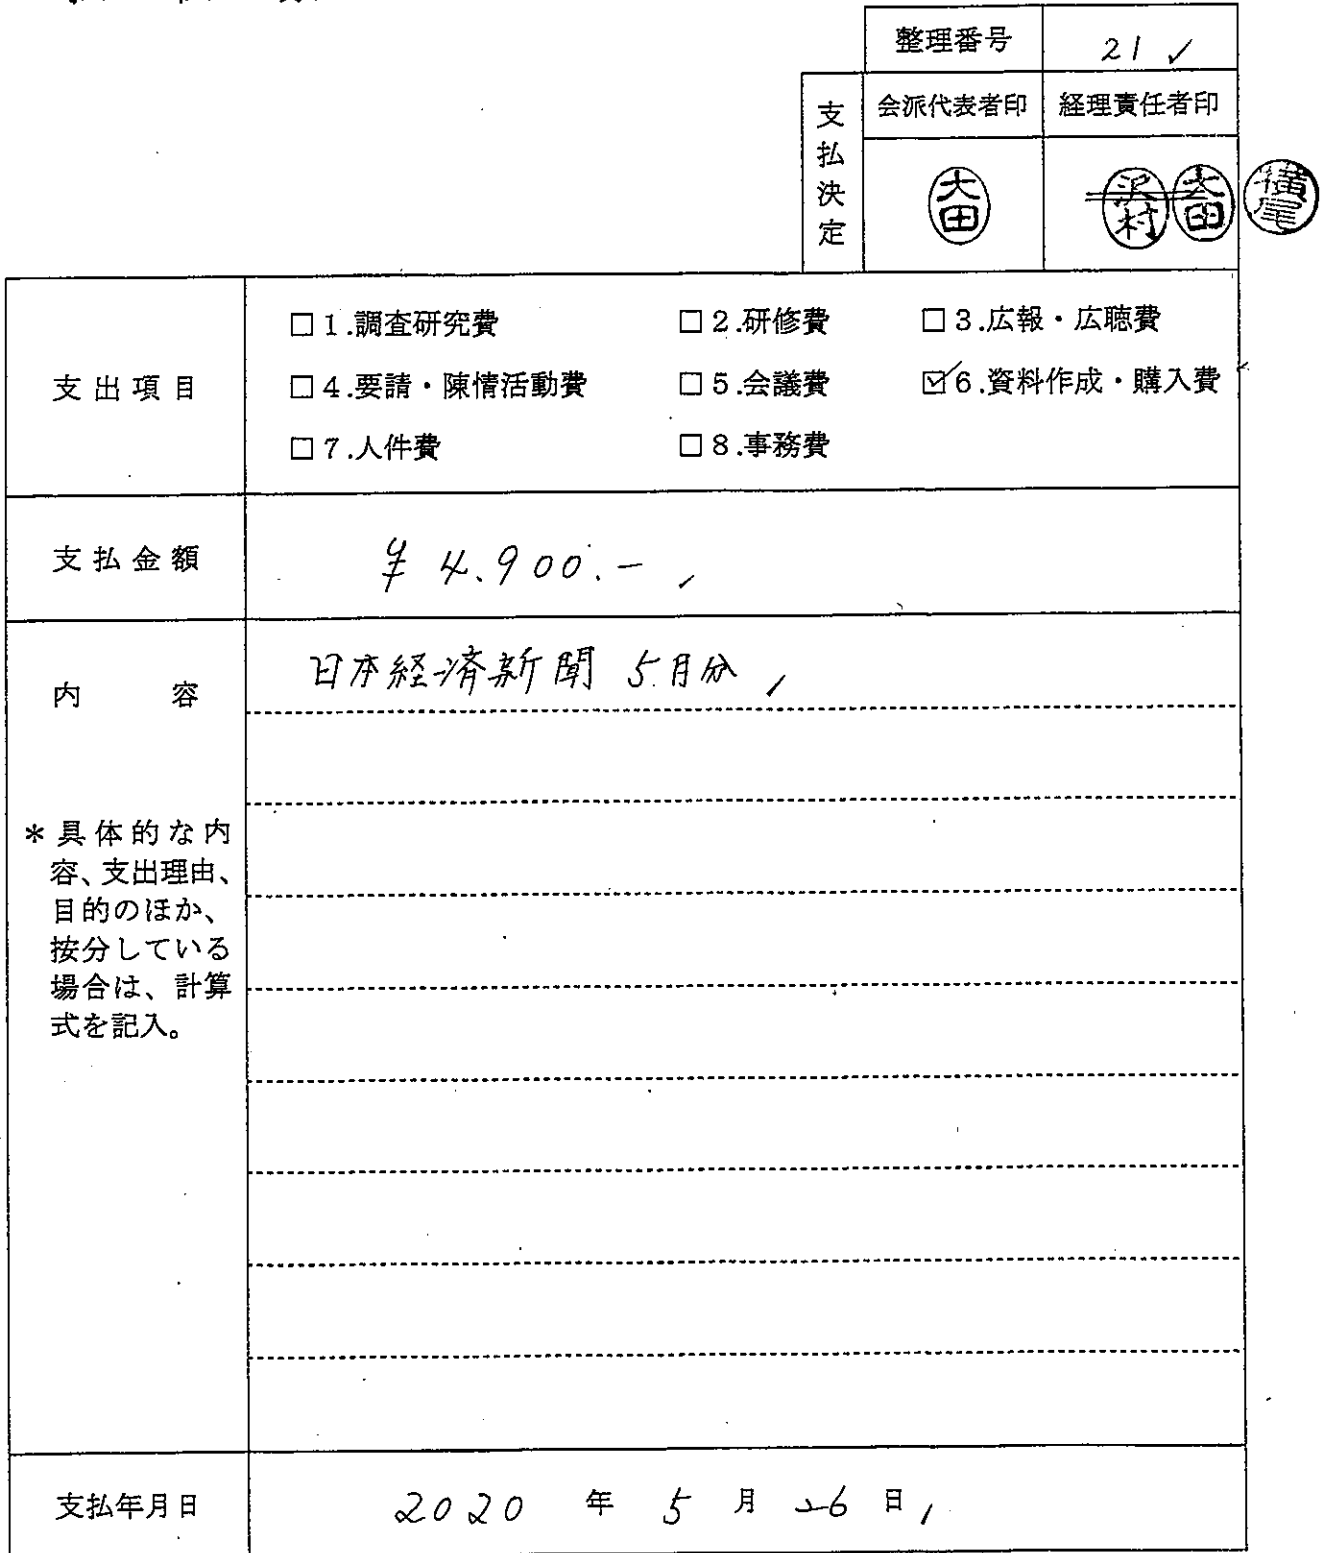 整理番号 21 ✓
支払決定
会派代表者印 経理責任者印
大田 沢村 大田 横尾
支出項目
□1.調査研究費 □2.研修費 □3.広報・広聴費
□4.要請・陳情活動費 □5.会議費 ☑6.資料作成・購入費
□7.人件費 □8.事務費
支払金額 ¥4.900.-
内容 日本経済新聞 5月分
*具体的な内
容、支出理由、
目的のほか、
按分している
場合は、計算
式を記入。
支払年月日 2020 年 5 月 26 日